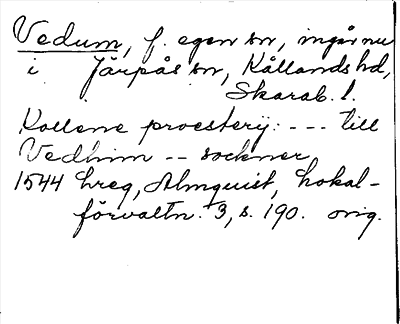 Vedum, f. egen sn, ingår nu
i Järpås sn, Kållands hd,
Skarab. l.
Kollene proestery: --- till
Vedhim -- sockner
1544 Lreg, Almquist, Lokal-
förvaltn. 3, s. 190. orig.